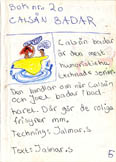 Bok nr. 20
CALSÅN BADAR
Calsån badar
är den mest
humoristiska
tecknade serien.
Den handlar om när Calsån
och Joel badar i bad-
karet. Där gör de roliga
frisyrer mm.
Tecknings Jalmar.S
Text: Jalmar.S